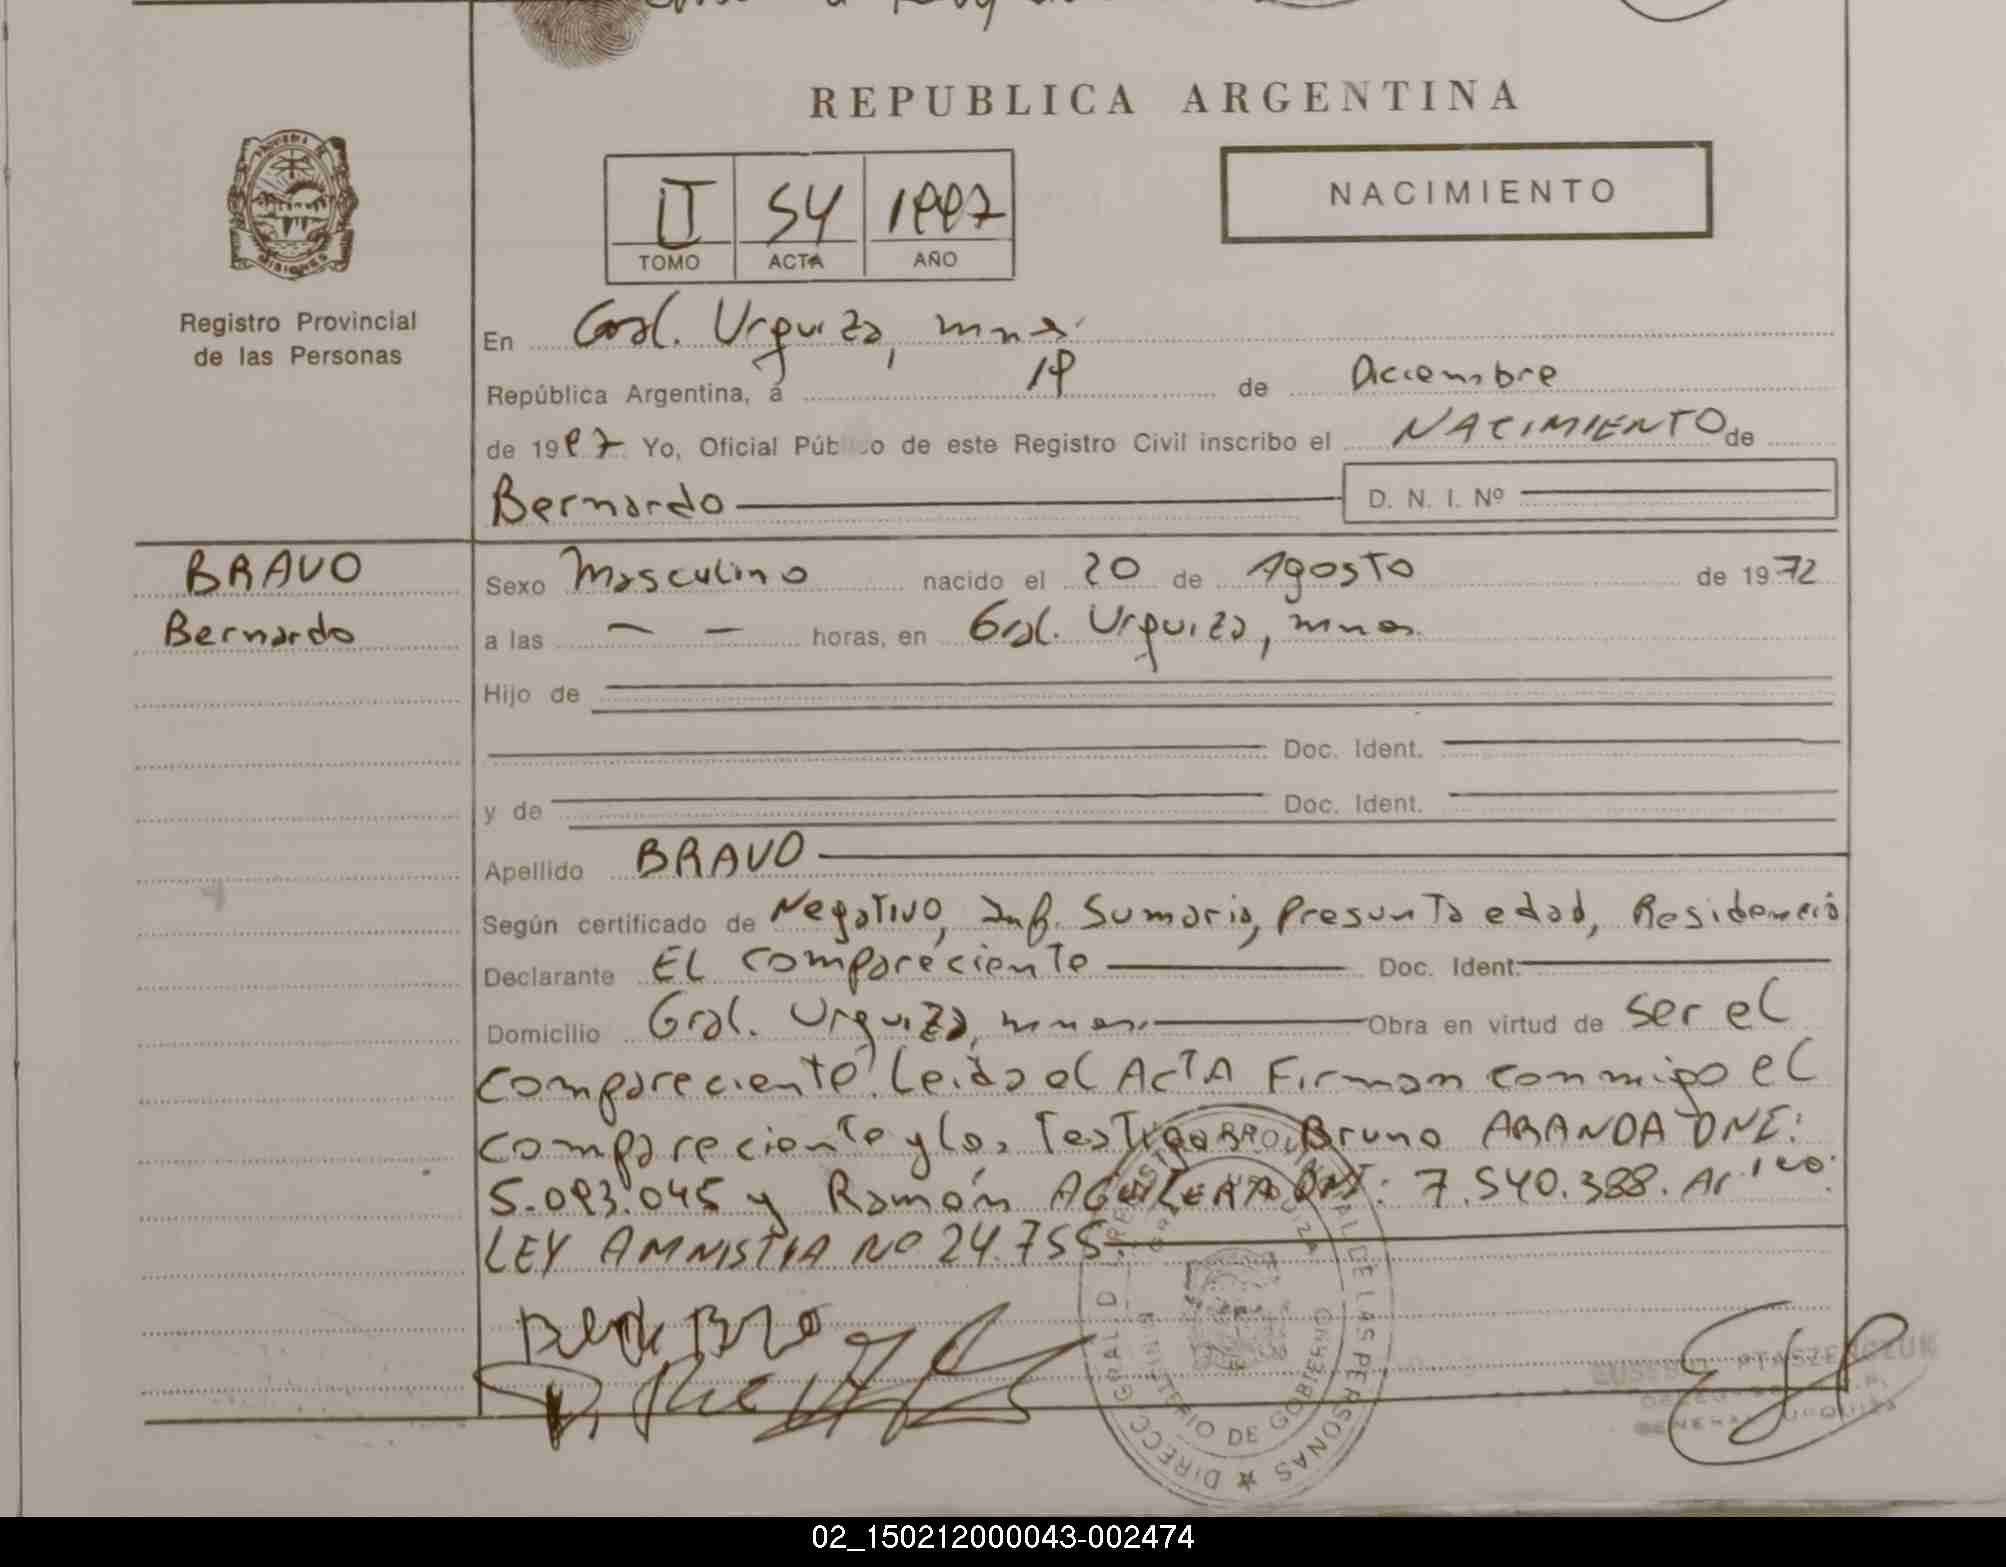 REPUBLICA ARGENTINA
II 54 1997
TOMO ACTA AÑO
NACIMIENTO
Registro Provincial
de las Personas
En Gral. Urquiza, mnes.
República Argentina, á 19 de Diciembre
de 1997 Yo, Oficial Público de este Registro Civil inscribo el NACIMIENTO de
Bernardo D. N. I. Nº
BRAVO
Bernardo
Sexo Masculino nacido el 20 de Agosto de 1972
a las — — horas, en Gral. Urquiza, mnes.
Hijo de
Doc. Ident.
y de Doc. Ident.
Apellido BRAVO
Según certificado de Negativo, Inf. Sumaria, Presunta edad, Residencia
Declarante EL compareciente Doc. Ident.
Domicilio Gral. Urquiza, mnes. Obra en virtud de ser el
compareciente. Leida el ActA Firman conmigo el
compareciente y los Testigos Bruno ARANDA DNI:
5.093.045 y Ramón AGUILERA DNI: 7.540.388.
LEY AMNISTIA Nº 24.755
DIRECC. GRAL. D REGISTRO PROVINCIAL DE LAS PERSONAS
MINISTERIO DE GOBIERNO
GRAL. URQUIZA
EUSEBIO PTASZENCZUK
GENERAL URQUIZA
02_150212000043-002474